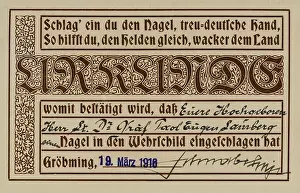 Schlag' ein du den Nagel, treu-deutsche Hand,
So hilfst du, den Helden gleich, wacker dem Land
URKUNDE
womit bestätigt wird, daß Euere Hochgeboren
Herr Dr. Graf Eugen
einen Nagel in den Wehrschild eingeschlagen hat
Gröbming, 19. März 1916